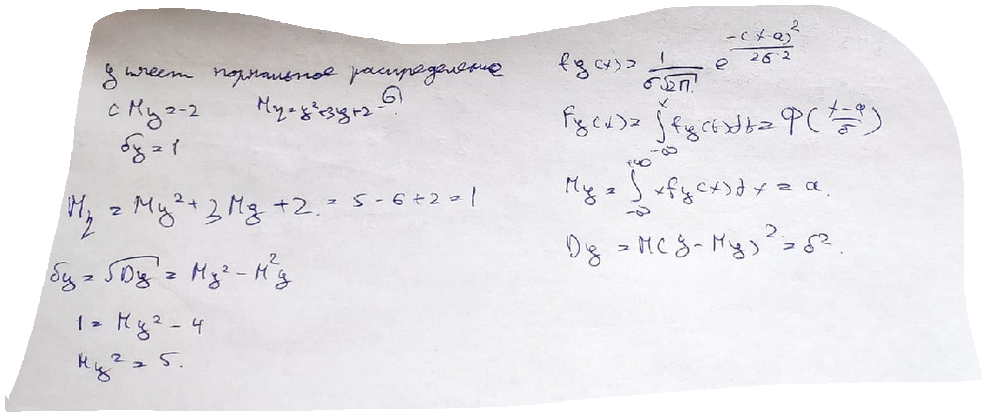 ξ имеет нормальное распределение
с Mξ = -2 Mη = ξ²+3ξ+2 -
σξ = 1
Mη = Mξ² + 3Mξ + 2 = 5 - 6 + 2 = 1
σξ = √Dξ = Mξ² - M²ξ
1 = Mξ² - 4
Mξ² = 5.
fξ(x) = 1/(σ√2π) e^(-(x-a)²/2σ²)
Fξ(x) = ∫_{-∞}^{x} fξ(t)dt = Φ((x-a)/σ)
Mξ = ∫_{-∞}^{+∞} x fξ(x)dx = a.
Dξ = M(ξ - Mξ)² = σ².